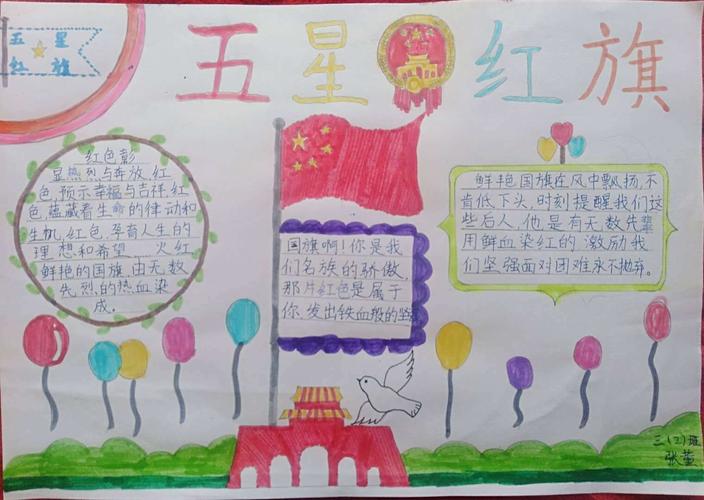 五星
红旗
五星红旗
红色彰
显热烈与奔放,红
色,预示幸福与吉祥,红
色,蕴藏着生命的律动和
生机,红色,孕育人生的
理想和希望……火红
鲜艳的国旗,由无数
先烈的热血染
成。
国旗啊!你是我
们名族的骄傲,
那片红色是属于
你,发出铁血般的坚
鲜艳国旗在风中飘扬,不
肯低下头,时刻提醒我们这
些后人,他是有无数先辈
用鲜血染红的,激励我
们坚强面对困难永不抛弃。
三(2)班
张萱